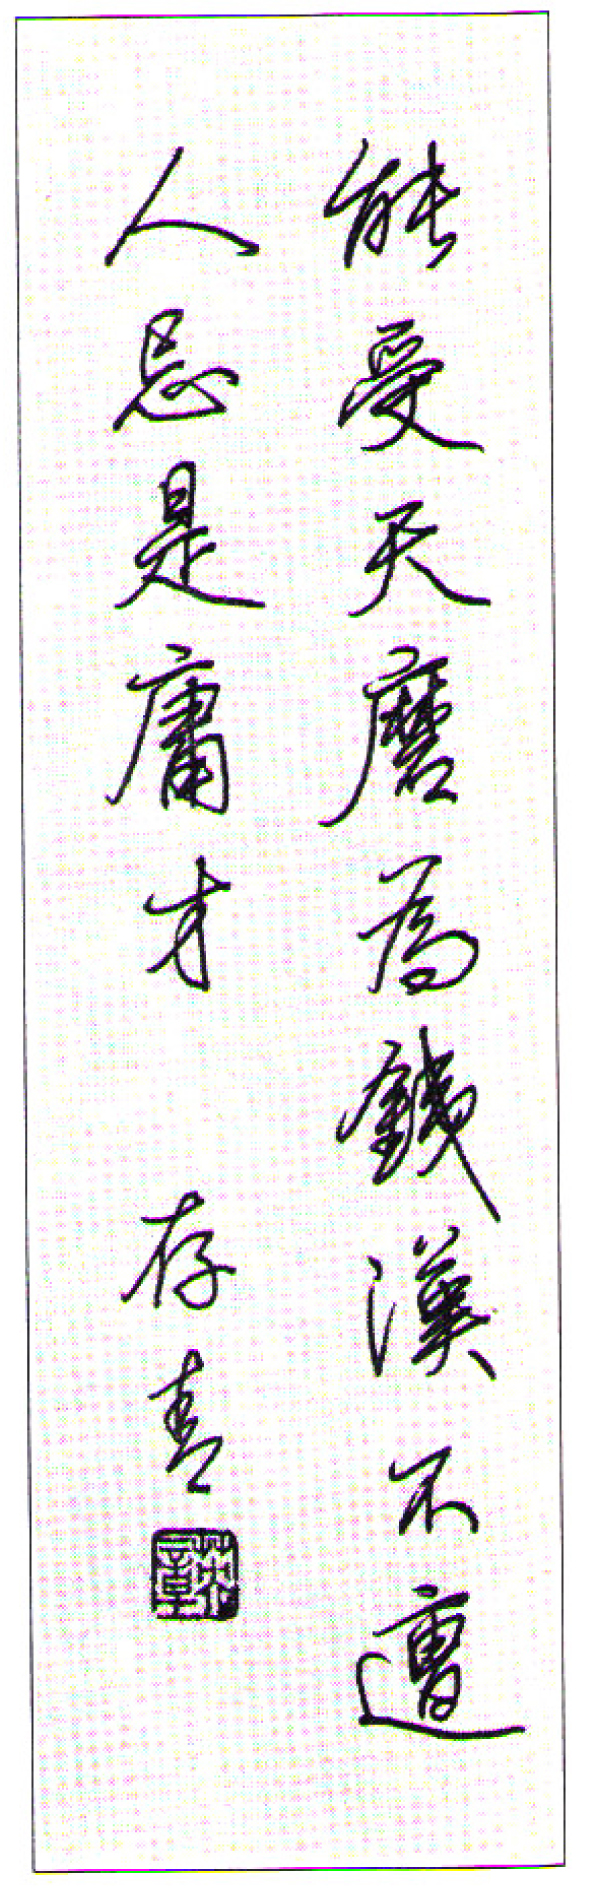 能受天磨為鐵漢不遭
人忌是庸才 存